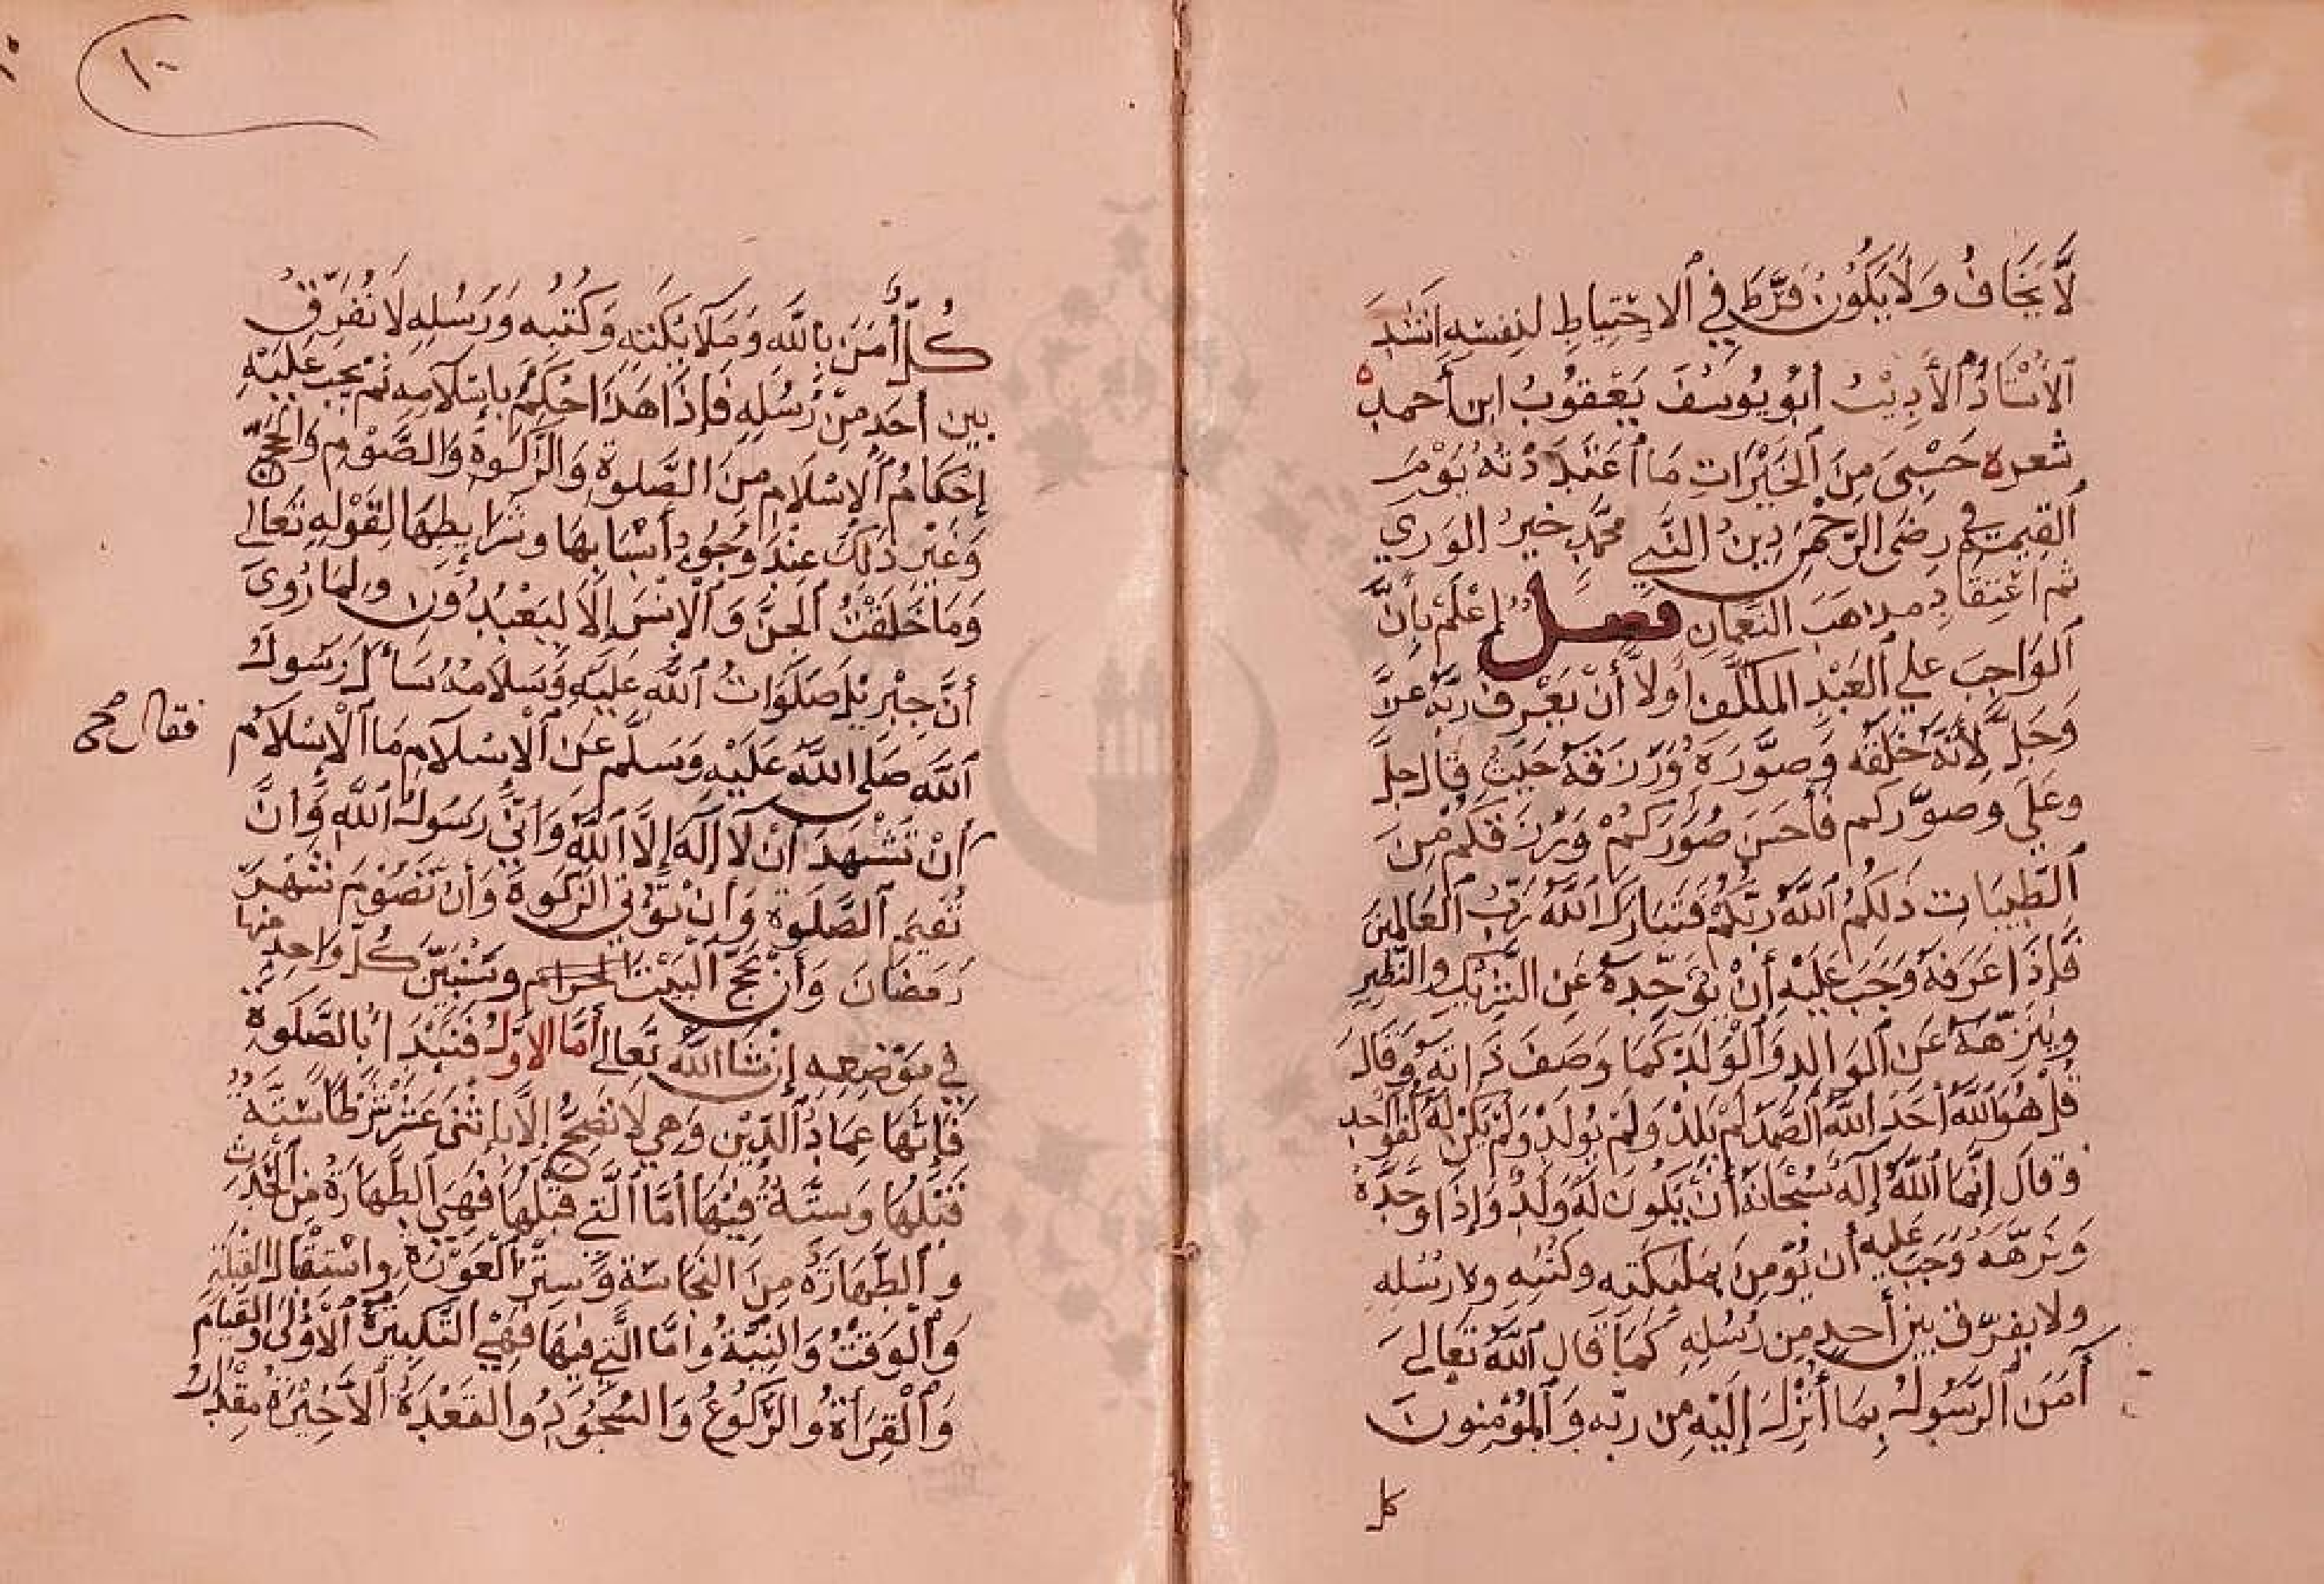 لَا يَخَافُ وَلَا يَكُونُ فَرَّطَ فِي الاحْتِيَاطِ لنِفسِهِ اَنشَدَ
الاُسْتَاذُ الأَدِيْبُ أَبُو يُوسُفَ يَعْقُوْبُ ابن أحمد ه
شعره حَسْبِى مِنَ الخَيْرَاتِ مَا أَعْتَدَدْتُهُ يَوْمَ
القِيمَة في رضَى الرَّحْمٰنِ دِينُ النَّبِي محَمَّدٍ خيرُ الوَرَي
ثم اعْتِقَادِ مذاهَبَ النُعْمَانِ فصل إعْلَمْ بِأنَّ
الوَاجِبَ علي العَبْدِ المكَلَّفِ أولاً أنْ يَعْرِفَ ربَّهُ عزَّ
وَجَلَّ لأَنَّهُ خَلَقَه وَصوَّرَهُ وَرَزَقَهُ حَيْثُ قال جلَّ
وعَلَى وصوَّركم فأحسَنَ صُوَرَكُمْ وَرَزَقكُم مِنَ
الطَّيِّبَاتِ ذَلكُمُ اللَّه ربّكُمْ فَتَبَارَكَ اللَّهُ رَبُّ العَالمِينَ
فَإِذَا عَرَفَهُ وَجَبَ عَلَيْهِ أنْ يُوَحِّدَهُ عَنِ الشَّرِيْكِ والنَّظِيرِ
ويُنَزِّهَهُ عَنِ الوَالِدِ وَالوَلَدِ كمَا وَصَفَ ذَاتَهُ وقَالَ
قُل هُوَ اللَّهُ أَحَدٌ اللَّهُ الصَّمَدُ لَمْ يَلِدْ وَلَمْ يُولَدْ وَلَمْ يَكُنْ لَهُ كفوًا أحد
وقَالَ إِنَّمَا اللَّهُ إِلَهٌ سُبْحَانَهُ أَنْ يَكُونَ لَهُ وَلَدٌ وَإِذَا وَحَّدَهُ
وَنَزَّهَهُ وَجَبَ عَلَيهِ أن يُؤمِنَ بملَئِكَتِه وكُتُبِه ولا رُسُلِه
ولا يفرّق بين أحدٍ مِن رُسُلِهِ كَمَا قَالَ اللَّهُ تَعَالَى
آمَنَ الرَّسُولُ بِمَا أُنْزِلَ إِلَيْهِ مِن ربّه وَالْمُؤْمِنُونَ
كل
١٠
١٠
كُلٌّ آمَنَ بِاللَّهِ وَمَلَائِكَتِهِ وَكُتُبِه وَرُسُلِهِ لَا نُفَرِّقُ
بينَ أحَدٍ مِنْ رُسُلِهِ فَإِذَا هَذَا حُكِمَ بِإِسْلَامِهِ ثم يجب عَلَيْهِ
إحْكَامُ الإسْلَامِ مِنَ الصَّلوة وَالزَّكوة وَالصَّوْمِ وَالحجّ
وَغَيْرِ ذَلِكَ عِنْدَ وُجُوْدِ أسْبَابِهَا وشَرَايطِهَا لِقَوْلِهِ تَعَالى
وَمَا خَلَقْتُ الجنَّ وَالْإِنْسَ إِلَّا لِيَعْبُدُونَ ولِمَا رُوِىَ
أنَّ جِبْرِيْلَ صَلَوَاتُ اللَّهِ عَلَيْهِ وَسَلَامُهُ سَأَلَ رَسُولَ
اللَّهِ صَلى اللَّه عَلَيْهِ وَسَلَّمَ عَنِ الْإِسْلَامِ مَا الْإِسْلَامُ
فقال صح
أَنْ تَشْهَدَ أَنْ لَا إِلَهَ إِلَّا اللَّهُ وَأَنِّي رَسُولُ اللَّهِ وَأَنْ
تُقيمَ الصَّلَوة وَأنْ تُؤْتِي الزَّكوة وَأنْ تَصُوْمَ شَهْرَ
رَمَضَانَ وَأَنْ تحُجَّ البَيْتَ الحرام وسَنُبَيِّنُ كُلَّ وَاحدٍ منها
في مَوْضِعِهِ إِنْشَا اللَّهُ تَعَالى أَمَّا الاَوَّلُ فَنَبْدَا بالصَّلَوةِ
فَإنّهَا عِمَادُ الدِّيْنِ وَهِي لَا تَصِحُّ إلَّا بِاثْنَى عَشَرَ شَرْطًا سِتَّة
قَبْلَهَا وَستَّةٌ فِيْهَا أمَّا الَّتِي قَبْلَهَا فَهِيَ الطَّهَارَةُ مِنَ الحَدَثِ
والطَّهَارَةُ مِنَ النَجَاسَة وَسِتْرُ العَوْرَة واسْتِقْبَال القِبْلَةِ
وَالوَقْتُ وَالنِّيَّةُ وَأمَّا الَّتِي فيهَا فَهِيَ التَّكبيرَةُ الأوْلىَ والقيام
وَالْقِرَأةُ وَالرّكُوعُ وَالسُّجُوْدُ والقَعْدَةُ الأخِيْرَةُ مِقْدَارَ